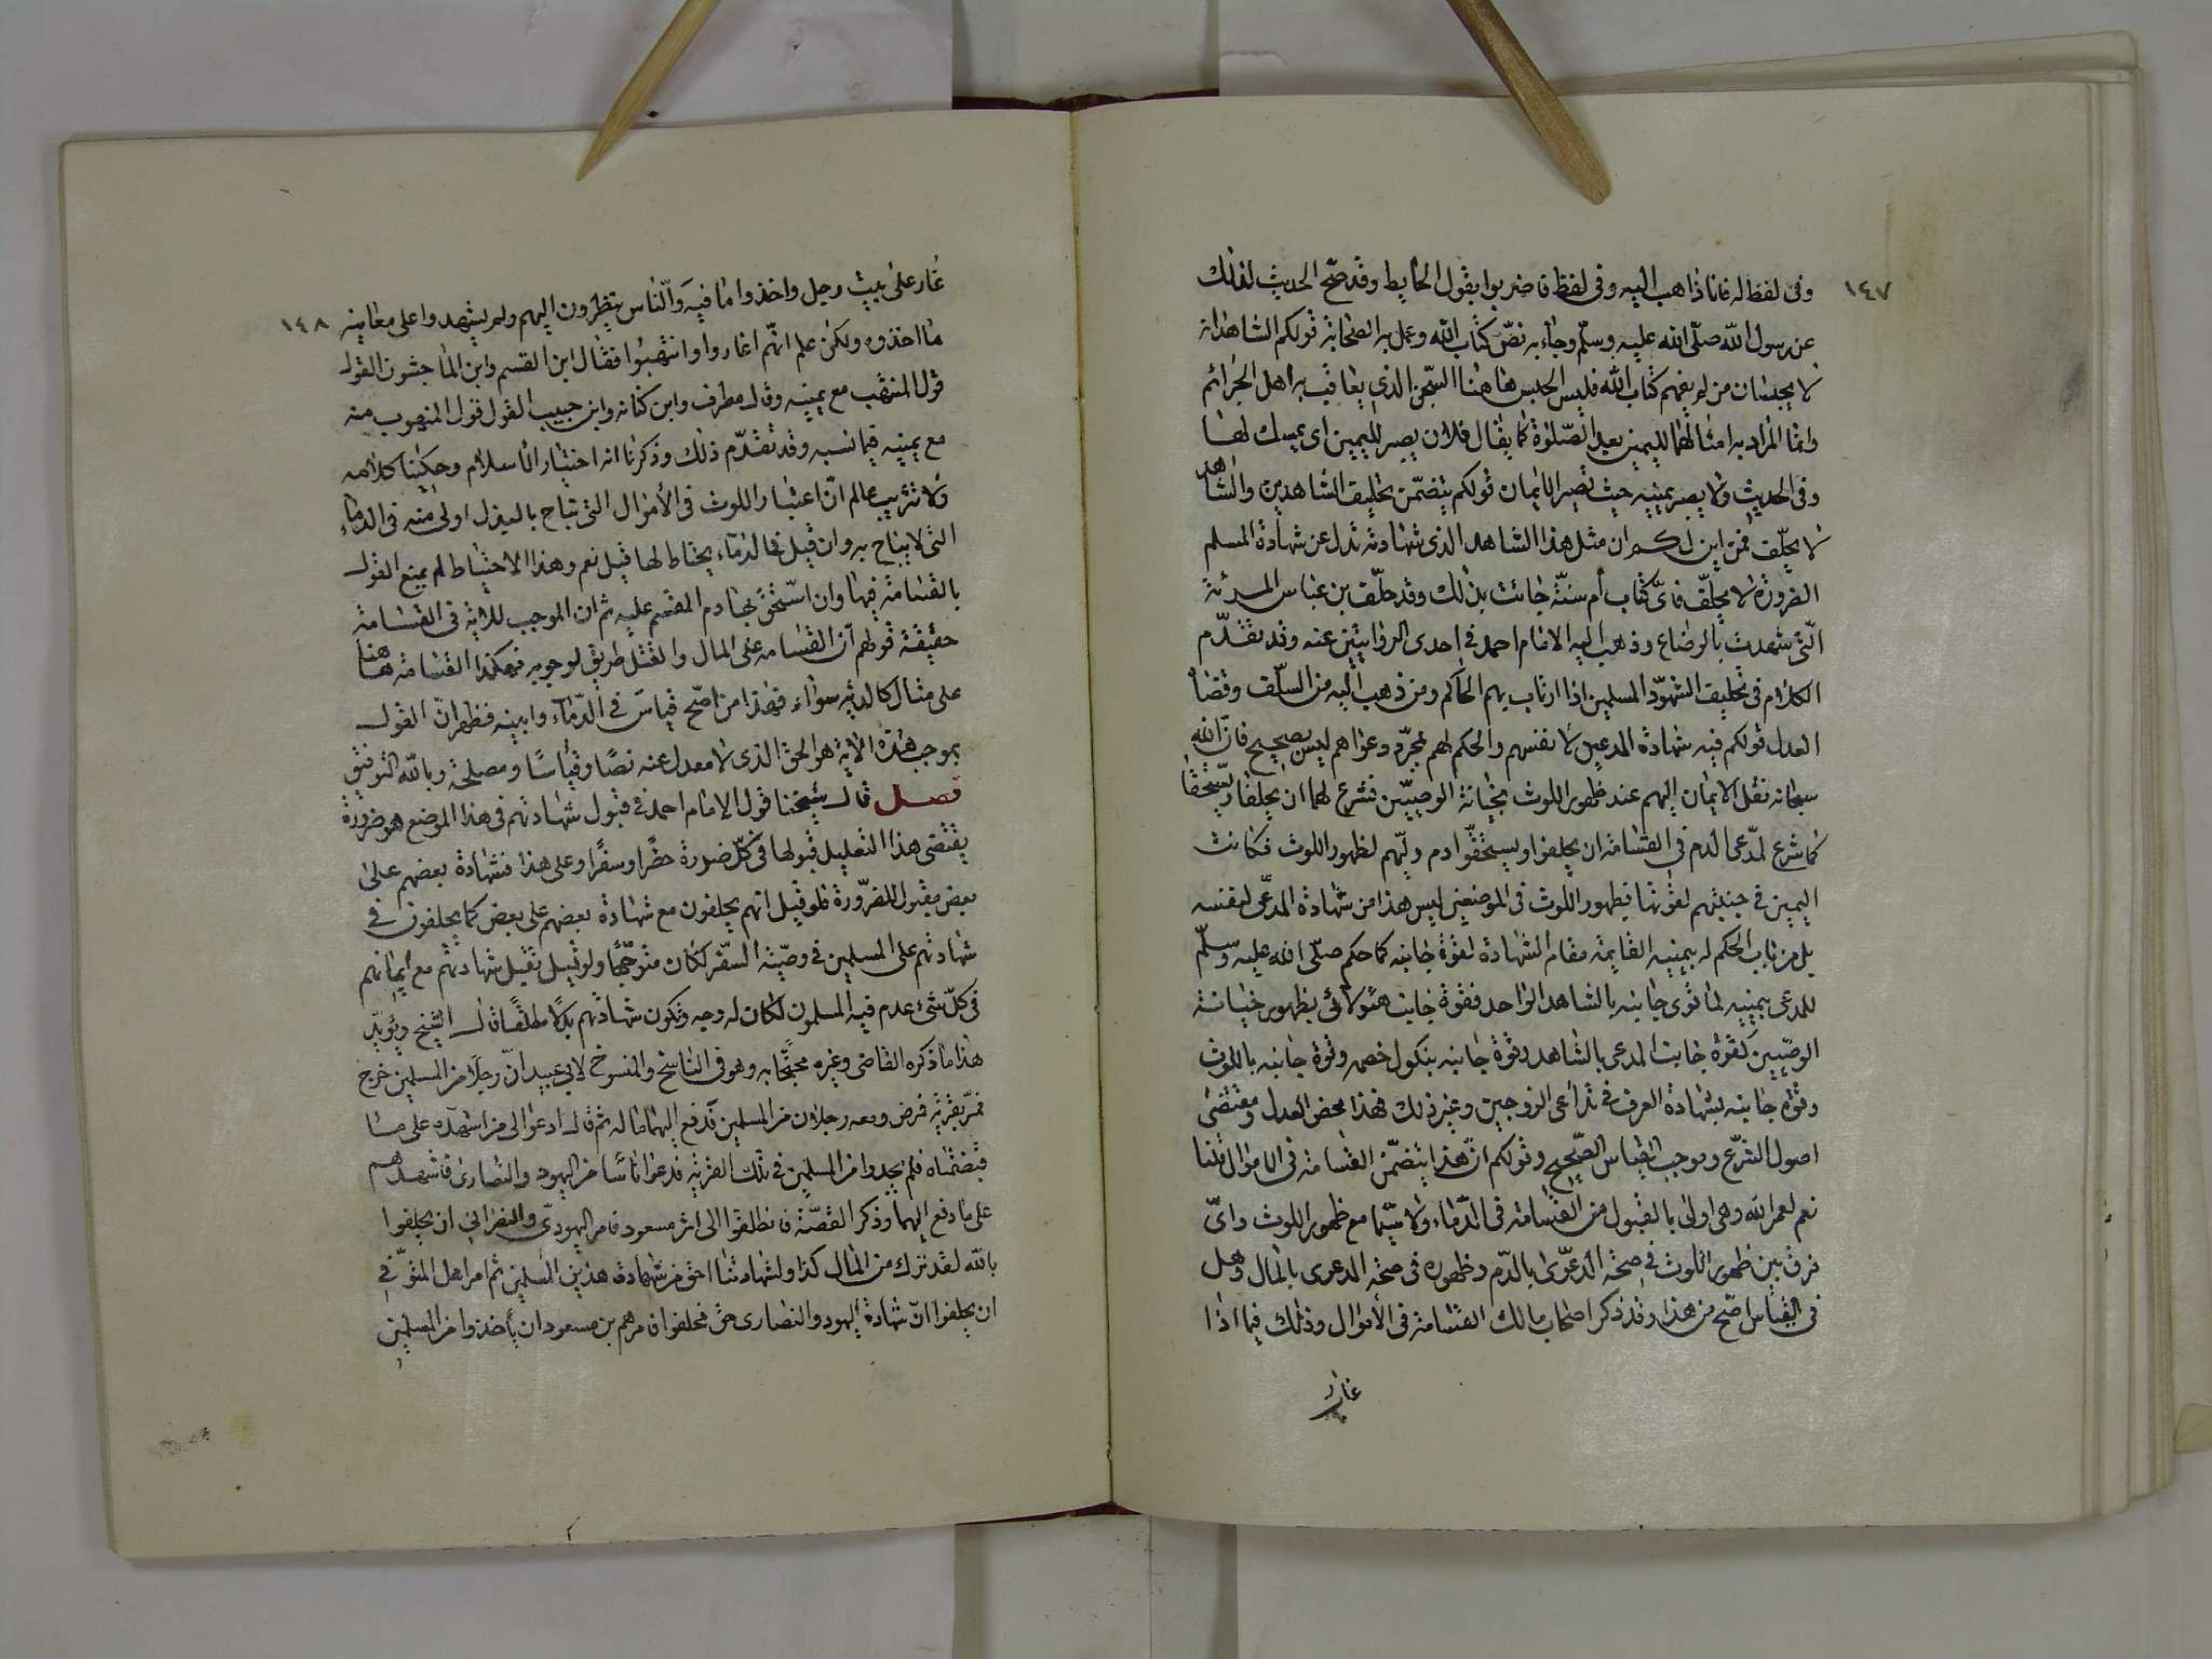 ١٤٧
وفى لفظ له فانا ذاهب اليه وفى لفظ فاضربوا بقول الحايط وقد صح الحديث لذلك
عن رسول الله صلّى الله عليه وسلّم وجاء به نصّ كتاب الله وعمل به الصحابة قولكم الشاهدان
لا يحبسان من لم يفهم كتاب الله فليس الحبس هاهنا السّجن الذى يعاقب به اهل الجرائم
وانما المراد به امساكهما لليمين بعد الصّلوٰة كما يقال فلان يصبر لليمين اى يمسك لها
وفى الحديث ولا يصبر يمينه حيث تصبر الايمان قولكم يتضمّن تحليف الشاهدين والشاهد
لا يحلّف فمن اين لكم ان مثل هذا الشاهد الذى شهادته بدل عن شهادة المسلم
الضرورة لا يحلّف فاىّ كتاب أم سنّة جائت بذلك وقد حلّف بن عباس المرئة
الّتى شهدت بالرضاع وذهب اليه الامام احمد فى احدى الروايتين عنه وقد تقدّم
الكلام فى تحليف الشهود المسلمين اذا ارتاب بهم الحاكم ومن ذهب اليه من السلف وقضاة
العدل قولكم فيه شهادة المدعين لانفسهم والحكم لهم بمجرّد دعواهم ليس بصحيح فان الله
سبحانه نقل الايمان اليهم عند ظهور اللوث بخيانة الوصيّين فشرع لهما ان يحلفا ويستحقا
كما شرع لمدّعى الدم فى القسامة ان يحلفوا ويستحقّوا دم وليّهم لظهور اللوث فكانت
اليمين فى جنبتهم لقوتها فبظهور اللوث فى الموضعين ليس هذا من شهادة المدّعى لنفسه
بل من باب الحكم له بيمينه القايمة مقام الشهادة لقوّة جانبه كما حكم صلّى الله عليه وسلّم
للمدعى بيمينه لما قوى جانبه بالشاهد الواحد فقوة جانب هؤلائى بظهور خيانة
الوصيّين كقوّة جانب المدعى بالشاهد وقوة جانبه بنكول خصمه وقوة جانبه باللوث
وقوّه جانبه بشهادة العرف فى تداعى الزوجين وغير ذلك فهذا محض العدل ومقتضى
اصول الشرع وموجب القياس الصّحيح وقولكم انّ هذا يتضمّن القسامة فى الاموال قلنا
نعم لعمر الله وهى اولى بالقبول من القسامة فى الدّماء ولا سيّما مع ظهور اللوث واىّ
فرق بين ظهور اللوث فى صحة الدعوى بالدّم وظهوره فى صحة الدعوى بالمال وهل
فى القياس اصّح من هذا وقد ذكر اصحاب مالك القسامة فى الأموال وذلك فيما اذا
غار
١٤٨
غار على بيت رجل واخذوا ما فيه والناس ينظرون اليهم ولم يشهدوا على معاينه
ما اخذوه ولكن علم انهم اغاروا وانتهبوا فقال ابن القسم وابن الماجشون القول
قول المنتهب مع يمينه وقال مطرف وابن كنانه وابن حبيب القول قول المنهوب منه
مع يمينه فيما نسبه وقد تقدّم ذلك وذكرنا انه اختيار الاسلام وحكينا كلامه
ولا تثريب عالم انّ اعتبار اللوث فى الأموال التى تباح بالبذل اولى منه فى الدماء
التى لا يباح به وان قيل فالدماء يحتاط لها قيل نعم وهذا الاحتياط لم يمنع القول
بالقسامة فيها وان استحق بها دم المقسم عليه ثم ان الموجب للدية فى القسامة
حقيقة قولهم أن القسامه على المال والقتل طريق لوجوبه فهكذا القسامة هاهنا
على مثال كالدية سواء فهٰذا من اصّح قياس فى الدّماء وابينه فظهر انّ القول
بموجب هٰذه الاية هو الحق الذى لا معدل عنه نصًا وقياسًا ومصلحة وبالله التوفيق
فصل قال شيخنا قول الإمام احمد فى قبول شهادتهم فى هذا الموضع هو ضرورة
يقتضى هذا التعليل قبولها فى كلّ ضرورة حضرًا وسفرًا وعلى هذا فشهادة بعضهم على
بعض مقبول للضرّورة فلو قيل انهم يحلفون مع شهادة بعضهم على بعض كما يحلفون فى
شهادتهم على المسلمين فى وصيّة السّفر لكان متوجّهًا ولو قيل تقبل شهادتهم مع أيمانهم
فى كلّ شىء عدم فيه المسلمون لكان له وجه وتكون شهادتهم بدلًا مطلقًا قال الشيخ ويؤيّد
هذا ما ذكره القاضى وغيره محتجًّا به وهو فى الناسخ والمنسوخ لابى عبيد انّ رجلًا من المسلمين خرج
فمرّ بقرية فمرض ومعه رجلان من المسلمين فدفع إليهما ماله ثم قال ادعوا الى من اشهده على ما
قبضتماه فلم يجدوا من المسلمين فى تلك القرية فدعوا اناسًا من اليهود والنصارى فاشهدهم
على ما دفع اليهما وذكر القصّة فانطلقوا الى ابن مسعود فامر اليهودىّ والنصرانى ان يحلفوا
بالله لقد ترك من المال كذا ولشهادتنا احق من شهادة هذين المسلمين ثم امر اهل المتوفّى
ان يحلفوا انّ شهادة اليهود والنصارى حق فحلفوا فامرهم بن مسعود ان يأخذوا من المسلمين